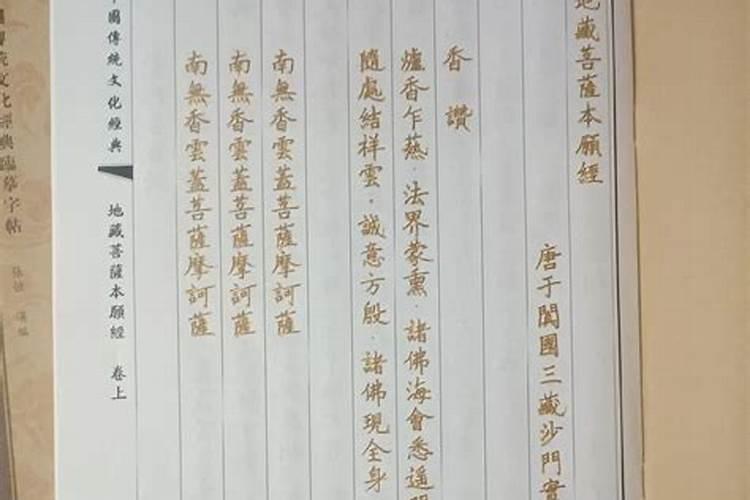 地藏菩薩本願經
唐于闐國三藏沙門實
香讚
爐香乍爇·法界蒙熏·諸佛海會悉遙
隨處結祥雲·誠意方殷·諸佛現全身
南無香雲蓋菩薩摩訶薩
南無香雲蓋菩薩摩訶薩
南無香雲蓋菩薩摩訶薩
中國傳統文化經典
地藏菩薩本願經 卷上
文化經典臨摹字帖